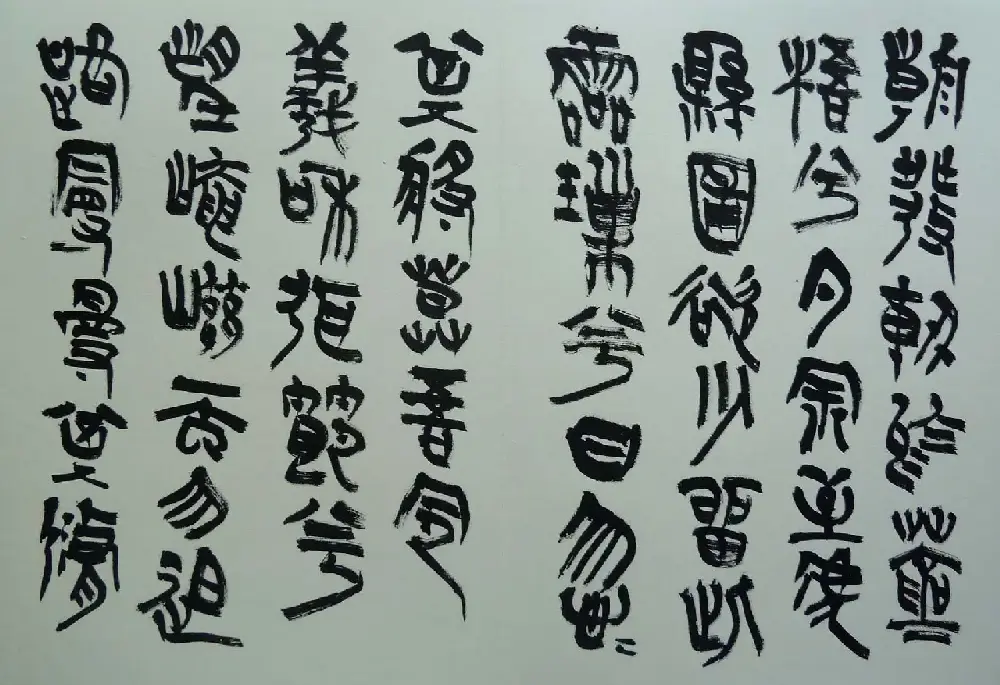 朝發軔於蒼
梧兮夕余至乎
縣圃欲少留此
靈璅兮日忽〻
其將暮吾令
羲和弭節兮
望崦嵫而勿迫
路曼曼其脩